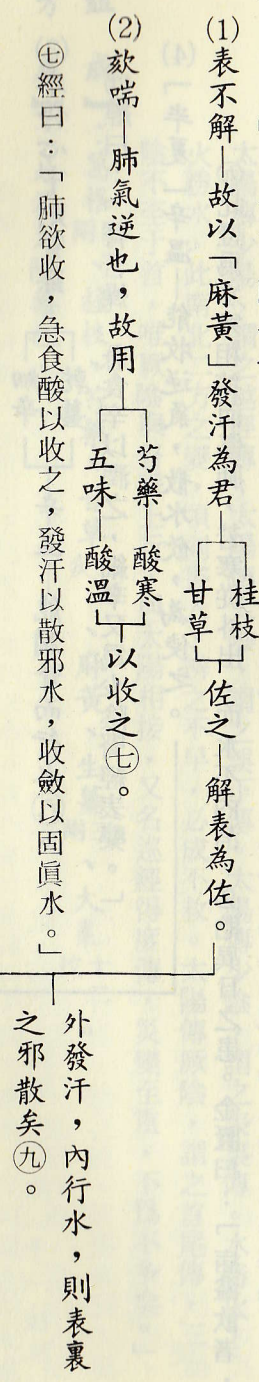 (1)表不解—故以「麻黃」發汗為君—桂枝 甘草—佐之—解表為佐。
(2)欬喘—肺氣逆也，故用—芍藥—酸寒 五味—酸溫—以收之㊆。
㊆經曰：「肺欲收，急食酸以收之，發汗以散邪水，收斂以固眞水。」
外發汗，內行水，則表裏
之邪散矣㊈。